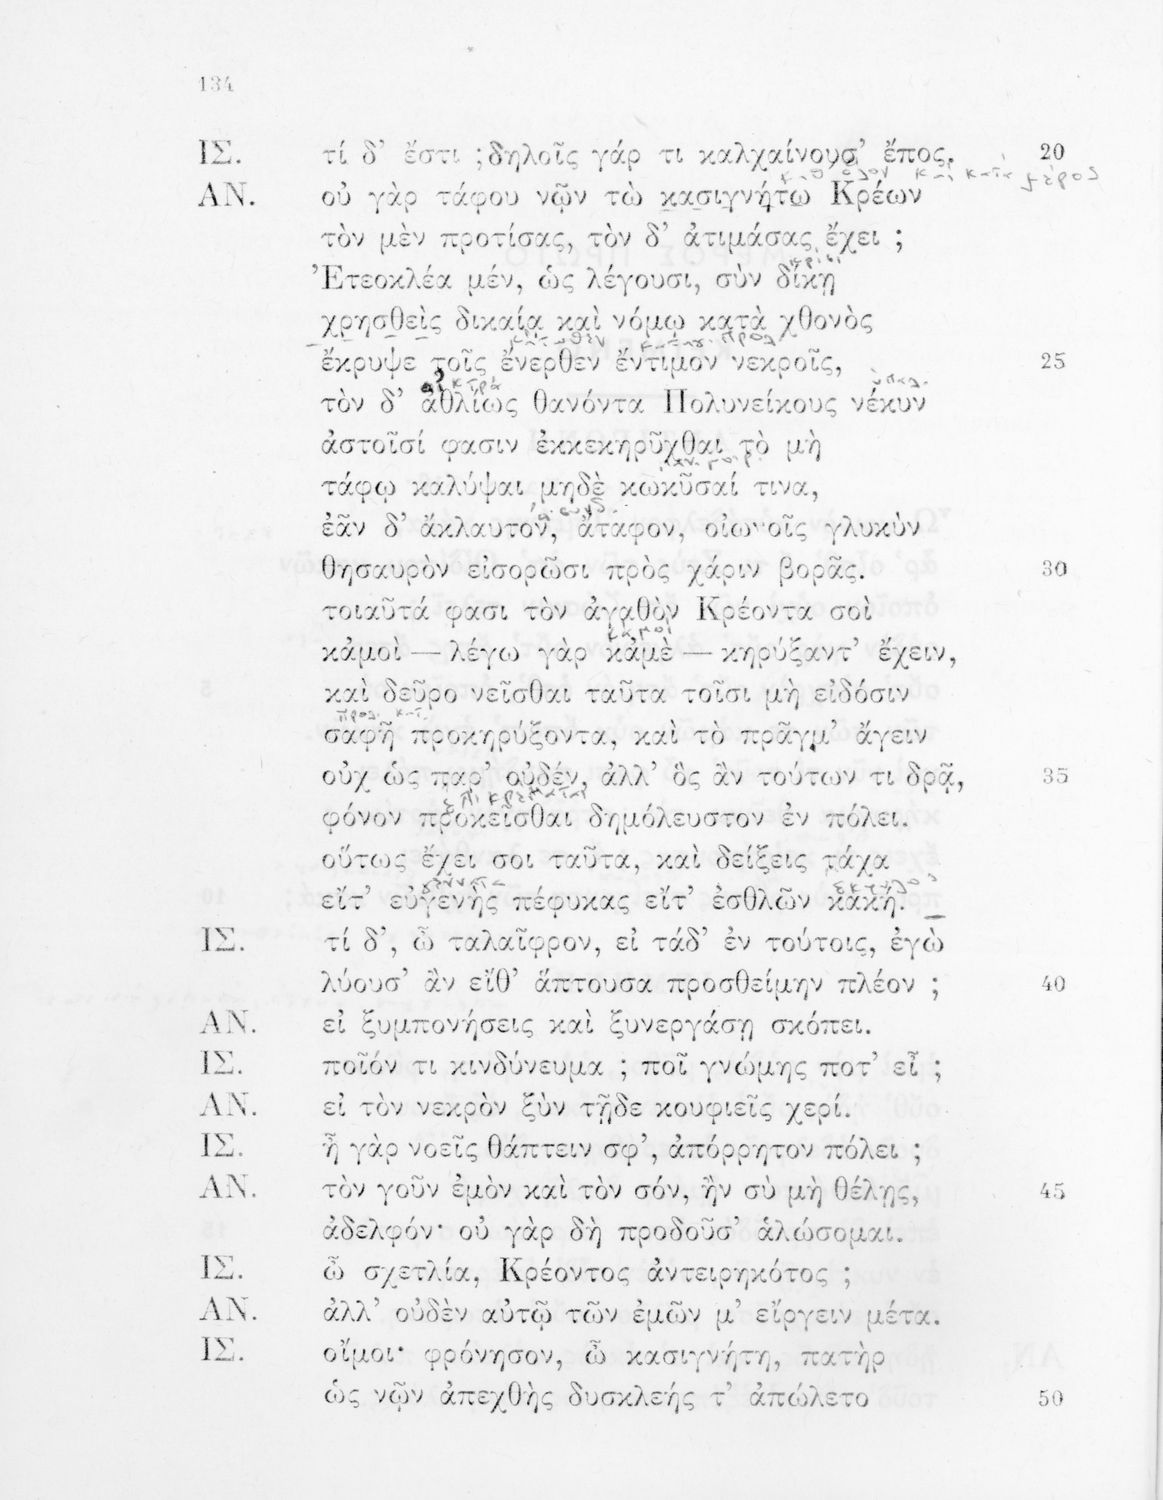 134
ΙΣ. τί δ' ἔστι ; δηλοῖς γάρ τι καλχαίνουσ' ἔπος. 20
καθ' ὅλον καὶ κατὰ μέρος
ΑΝ. οὐ γὰρ τάφου νῷν τὼ κασιγνήτω Κρέων
τὸν μὲν προτίσας, τὸν δ' ἀτιμάσας ἔχει ;
κρίσι
Ἐτεοκλέα μέν, ὡς λέγουσι, σὺν δίκῃ
χρησθεὶς δικαίᾳ καὶ νόμῳ κατὰ χθονὸς
ἔκρυψε τοῖς ἔνερθεν ἔντιμον νεκροῖς, 25
οἰκτρά
τὸν δ' ἀθλίως θανόντα Πολυνείκους νέκυν
ἀστοῖσί φασιν ἐκκεκηρῦχθαι τὸ μὴ
τάφῳ καλύψαι μηδὲ κωκῦσαί τινα,
ἐᾶν δ' ἄκλαυτον, ἄταφον, οἰωνοῖς γλυκὺν
θησαυρὸν εἰσορῶσι πρὸς χάριν βορᾶς. 30
τοιαῦτά φασι τὸν ἀγαθὸν Κρέοντα σοὶ
κἀμοὶ — λέγω γὰρ κἀμὲ — κηρύξαντ' ἔχειν,
καὶ δεῦρο νεῖσθαι ταῦτα τοῖσι μὴ εἰδόσιν
προσ. κατ.
σαφῆ προκηρύξοντα, καὶ τὸ πρᾶγμ' ἄγειν
οὐχ ὡς παρ' οὐδέν, ἀλλ' ὃς ἂν τούτων τι δρᾷ, 35
ἐπικρέμαται
φόνον προκεῖσθαι δημόλευστον ἐν πόλει.
οὕτως ἔχει σοι ταῦτα, καὶ δείξεις τάχα
εἴτ' εὐγενὴς πέφυκας εἴτ' ἐσθλῶν κακή.
ΙΣ. τί δ', ὦ ταλαῖφρον, εἰ τάδ' ἐν τούτοις, ἐγὼ
λύουσ' ἂν εἴθ' ἅπτουσα προσθείμην πλέον ; 40
ΑΝ. εἰ ξυμπονήσεις καὶ ξυνεργάσῃ σκόπει.
ΙΣ. ποῖόν τι κινδύνευμα ; ποῖ γνώμης ποτ' εἶ ;
ΑΝ. εἰ τὸν νεκρὸν ξὺν τῇδε κουφιεῖς χερί.
ΙΣ. ἦ γὰρ νοεῖς θάπτειν σφ', ἀπόρρητον πόλει ;
ΑΝ. τὸν γοῦν ἐμὸν καὶ τὸν σόν, ἢν σὺ μὴ θέλῃς, 45
ἀδελφόν· οὐ γὰρ δὴ προδοῦσ' ἁλώσομαι.
ΙΣ. ὦ σχετλία, Κρέοντος ἀντειρηκότος ;
ΑΝ. ἀλλ' οὐδὲν αὐτῷ τῶν ἐμῶν μ' εἴργειν μέτα.
ΙΣ. οἴμοι· φρόνησον, ὦ κασιγνήτη, πατὴρ
ὡς νῷν ἀπεχθὴς δυσκλεής τ' ἀπώλετο 50